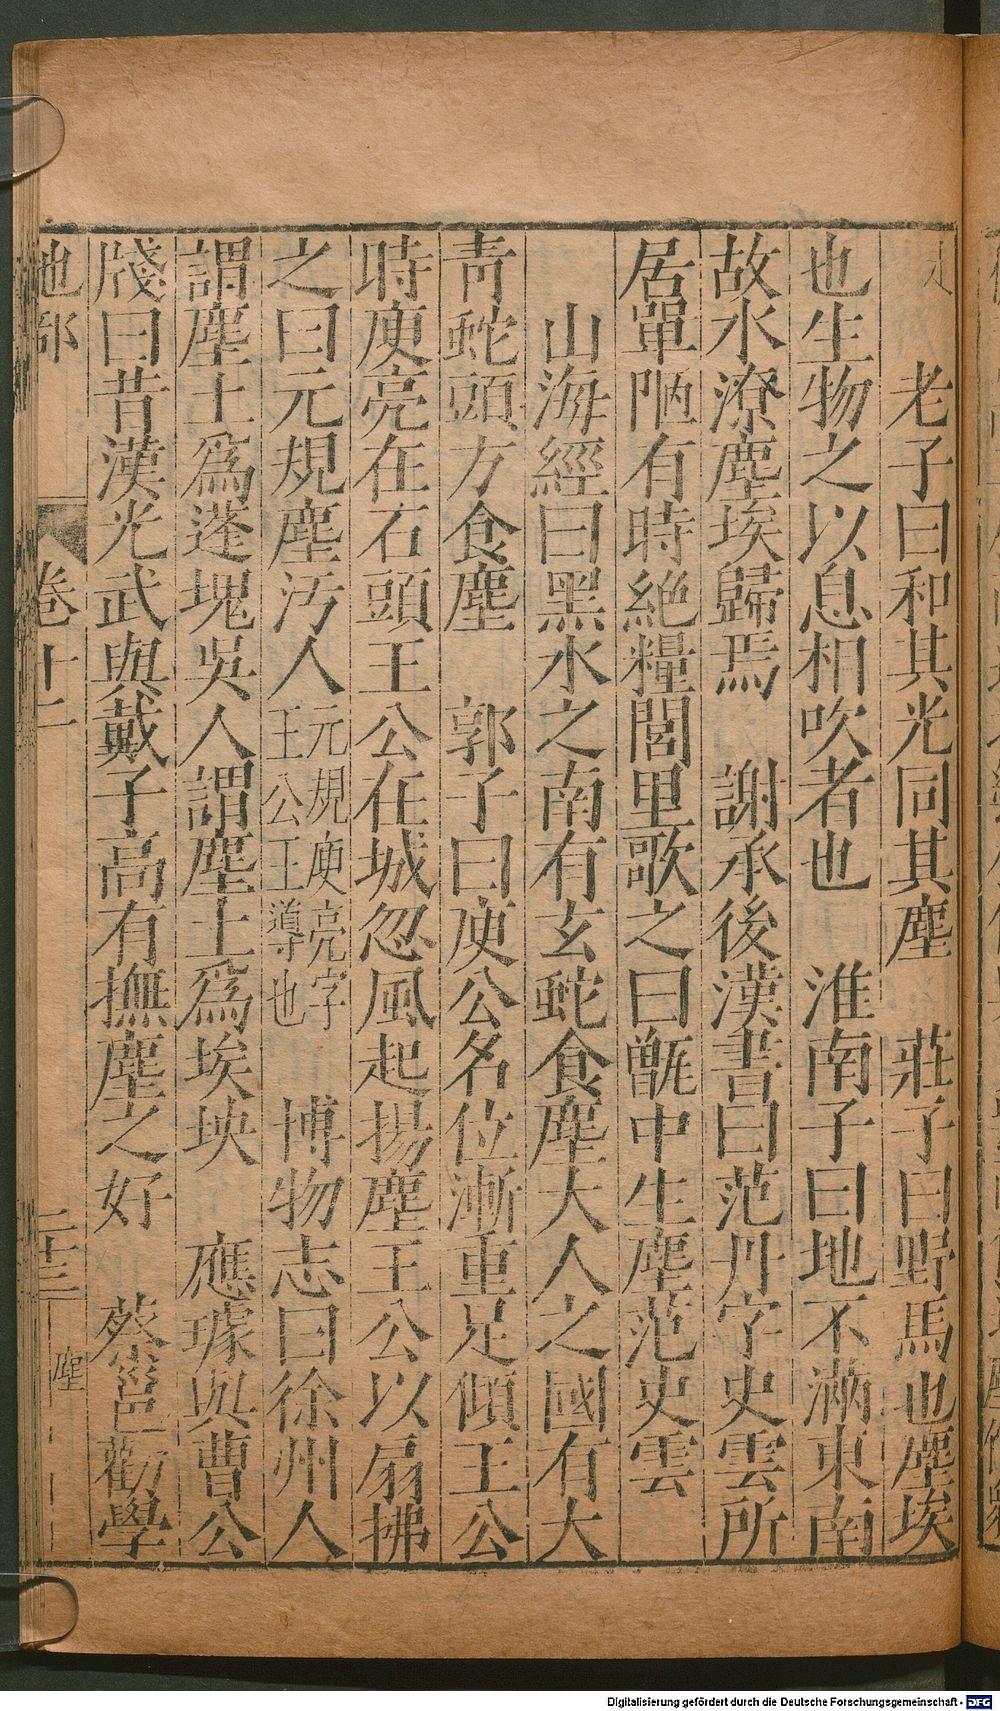 老子曰和其光同其塵　莊子曰野馬也塵埃
也生物之以息相吹者也　淮南子曰地不滿東南
故水潦塵埃歸焉　謝承後漢書曰范丹字史雲所
居單陋有時絶糧閭里歌之曰甑中生塵范史雲
山海經曰黑水之南有玄蛇食塵大人之國有大
青蛇頭方食塵　郭子曰庾公名位漸重足傾王公
時庾亮在石頭王公在城忽風起揚塵王公以扇拂
之曰元規塵汚人元規庾亮字王公王導也　博物志曰徐州人
謂塵土爲蓬塊吳人謂塵土爲埃坱　應璩與曹公
牋曰昔漢光武與戴子高有撫塵之好　蔡邕勸學
地部　卷十二　二十三　塵
Digitalisierung gefördert durch die Deutsche Forschungsgemeinschaft - DFG